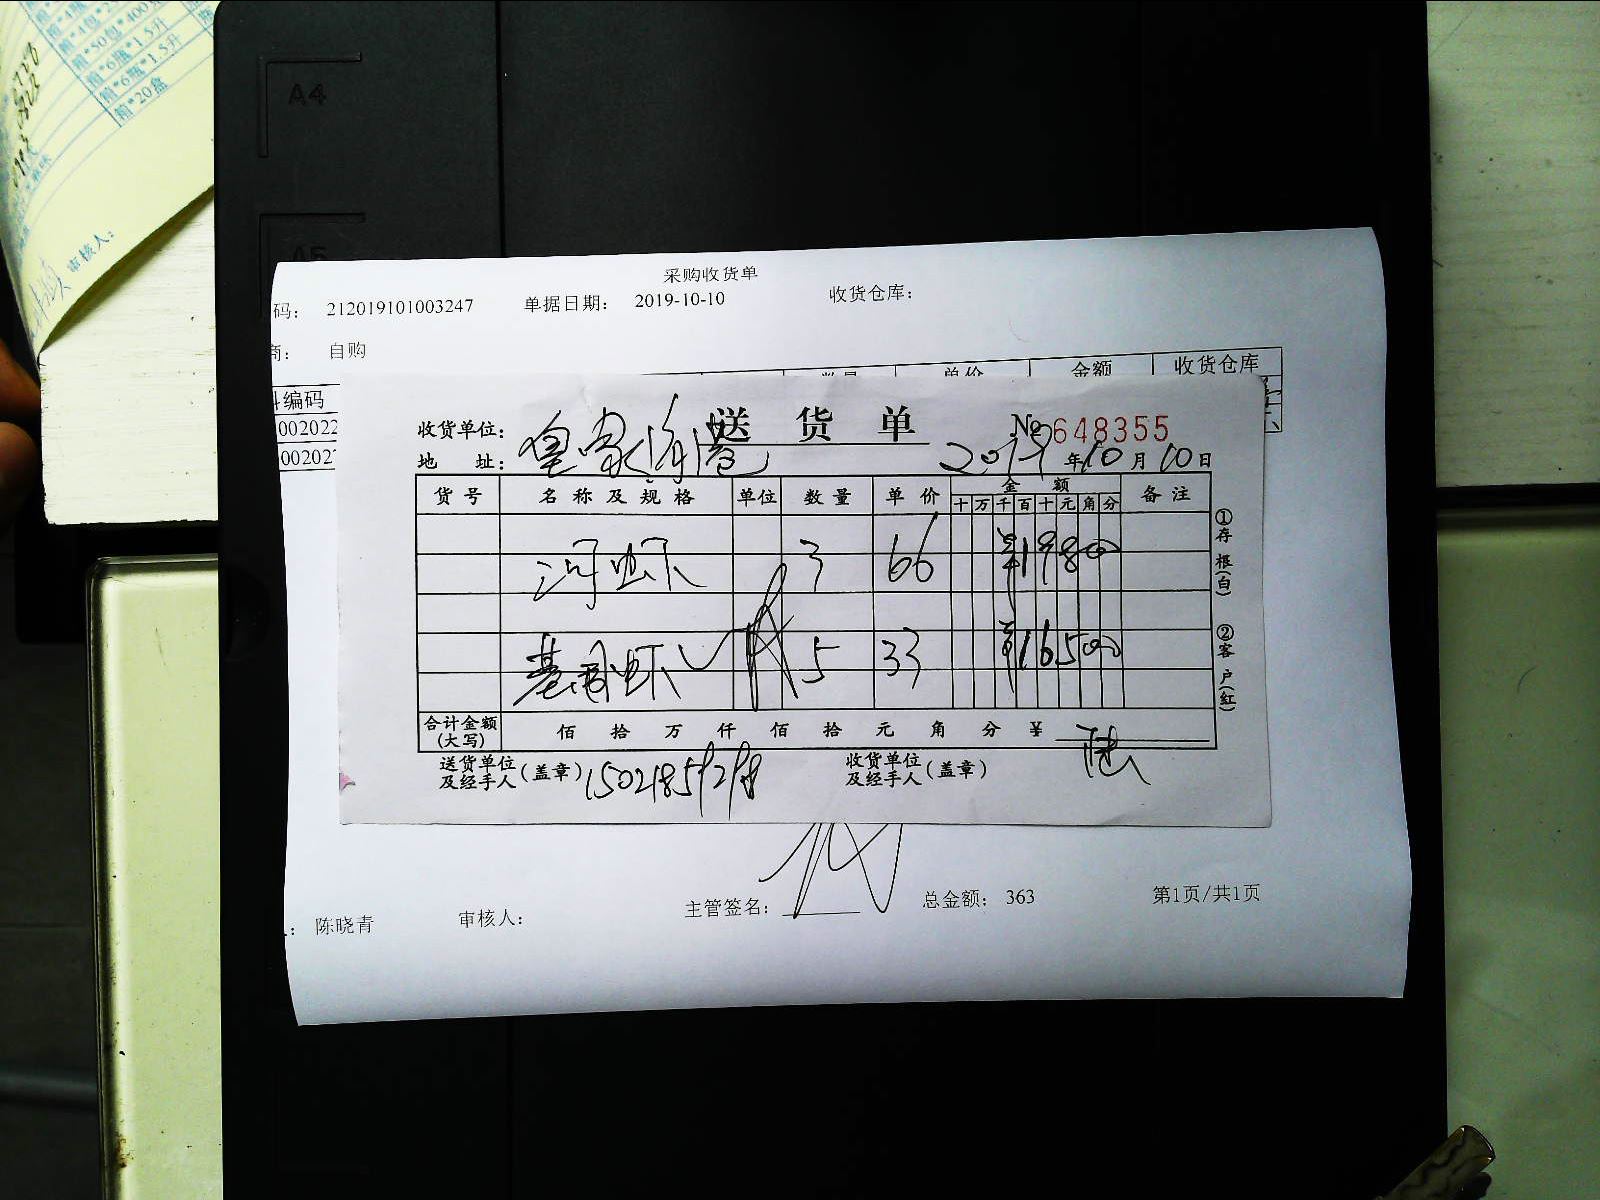 箱*4瓶
箱*4包*2
箱*50包*400
箱*6瓶*1.5升
箱*6瓶*1.5升
箱*20盒
审核人:
A4
A5
采购收货单
码: 212019101003247 单据日期: 2019-10-10 收货仓库:
商: 自购
编码 数量 单价 金额 收货仓库
002022
00202
送货单 № 648355
收货单位:
地 址: 2019年10月10日
货号 名称及规格 单位 数量 单价 金额 备注
十万千百十元角分
河虾 3 66 ¥19800
基围虾 5 33 ¥16500
合计金额(大写) 佰 拾 万 仟 佰 拾 元 角 分 ¥
送货单位及经手人(盖章) 收货单位及经手人(盖章)
①存根(白) ②客户(红)
陈晓青 审核人: 主管签名: 总金额: 363 第1页/共1页